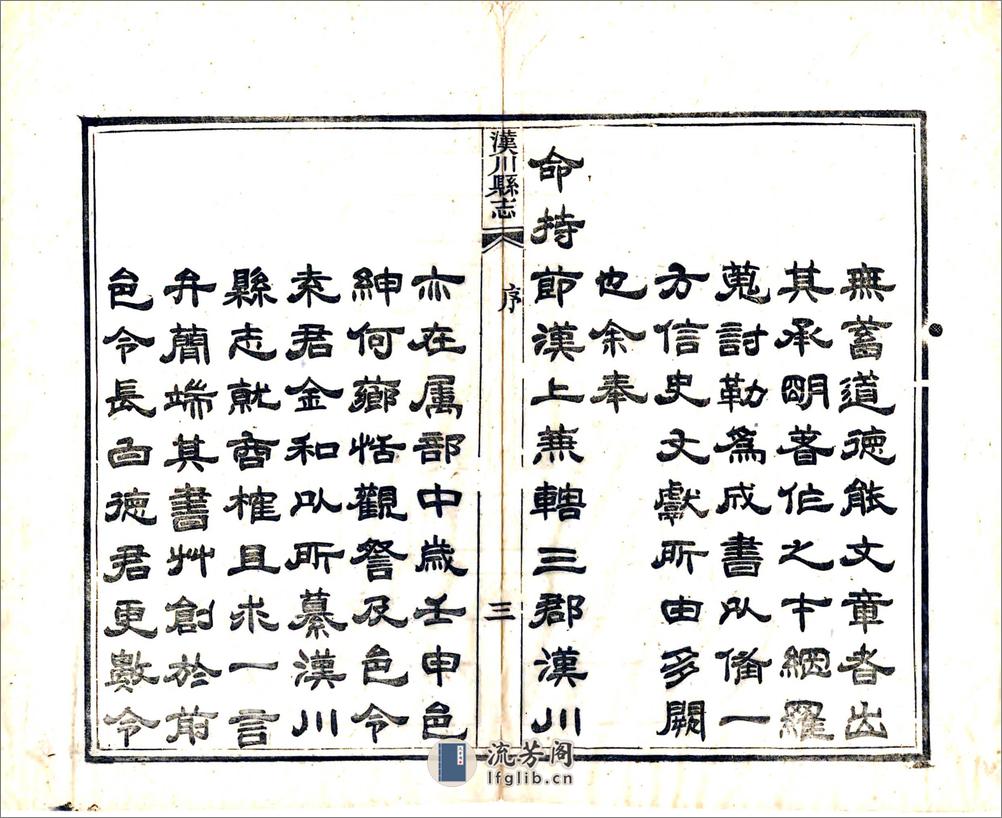 無蓄道德能文章者出
其承明著作之中網羅
蒐討勒爲成書以備一
方信史文獻所由多闕
也余奉
命持節漢上兼轄三郡漢川
漢川縣志
序
三
亦在属部中歲壬申邑
紳何薌恬觀詧及邑令
袁君金和以所纂漢川
縣志就商榷且求一言
弁簡端其書艸創於前
邑令長白德君更數令
流芳阁
lfglib.cn